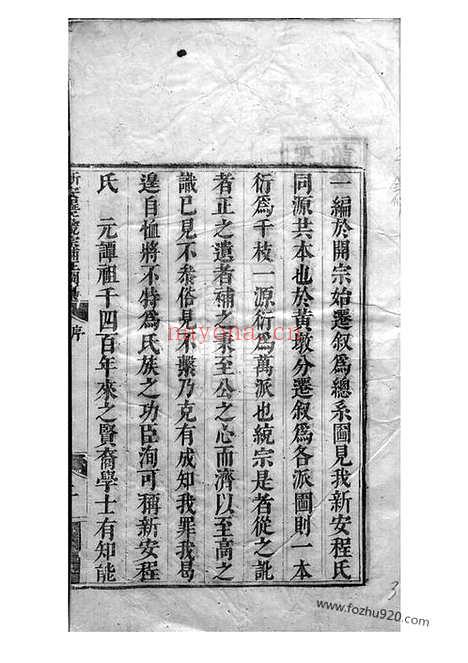 一編於開宗始遷叙爲總系圖見我新安程氏
同源共本也於黃墩分遷叙爲各派圖則一本
衍爲千枝一源衍爲萬派也統宗是者從之訛
者正之遺者補之秉至公之心而濟以至高之
識已見不泰俗見不繫乃克有成知我罪我曷
遑自恤將不特爲氏族之功臣洵可稱新安程
氏 元譚祖千四百年來之賢裔學士有知能
序
nayona.cn
www.fozhu920.com
3